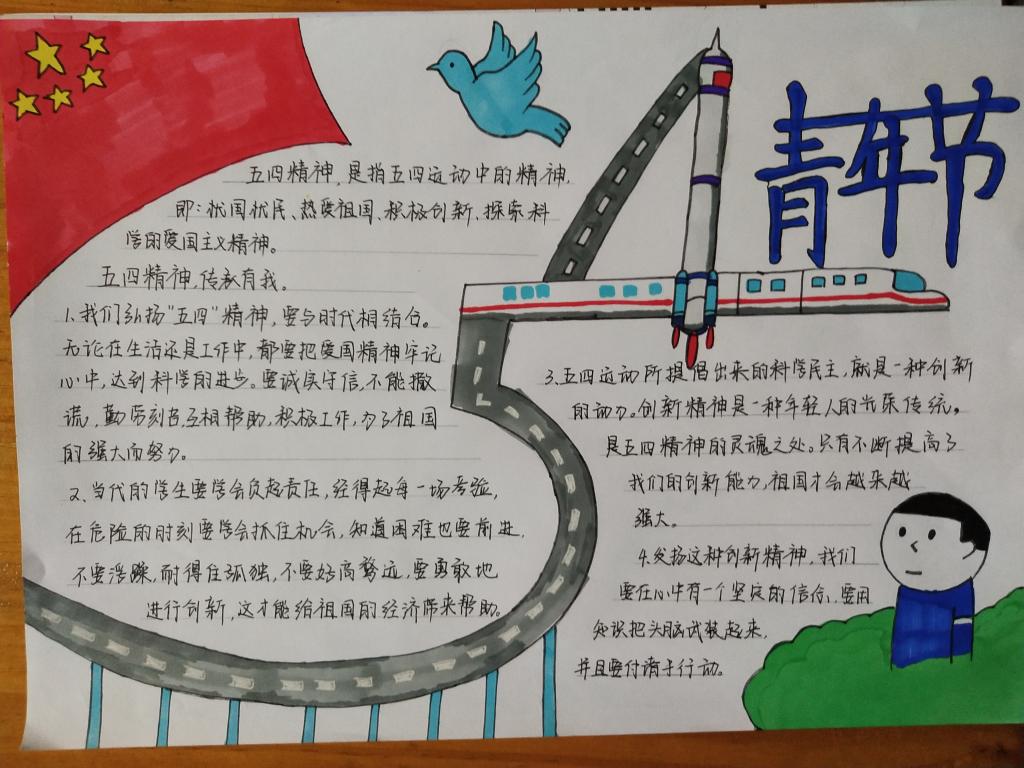 青年节
五四精神，是指五四运动中的精神，
即：忧国忧民、热爱祖国、积极创新、探索科
学的爱国主义精神。
五四精神，传承有我。
1、我们弘扬“五四”精神，要与时代相结合。
无论在生活还是工作中，都要把爱国精神牢记
心中，达到科学的进步。要诚实守信，不能撒
谎，勤劳刻苦，互相帮助，积极工作，为了祖国
的强大而努力。
2、当代的学生要学会负起责任，经得起每一场考验，
在危险的时刻要学会抓住机会，知道困难也要前进，
不要浮躁，耐得住孤独，不要好高骛远，要勇敢地
进行创新，这才能给祖国的经济带来帮助。
3、五四运动所提倡出来的科学民主，就是一种创新
的动力。创新精神是一种年轻人的光荣传统，
是五四精神的灵魂之处。只有不断提高了
我们的创新能力，祖国才会越来越
强大。
4、发扬这种创新精神，我们
要在心中有一个坚定的信念，要用
知识把头脑武装起来，
并且要付诸于行动。